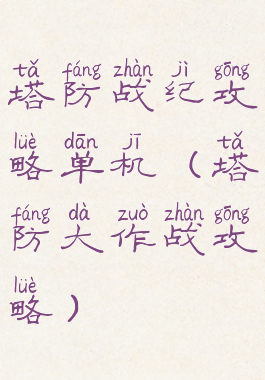 tǎ fáng zhàn jì gōng
塔防战纪攻
lüè dān jī tǎ
略单机（塔
fáng dà zuò zhàn gōng
防大作战攻
lüè
略）